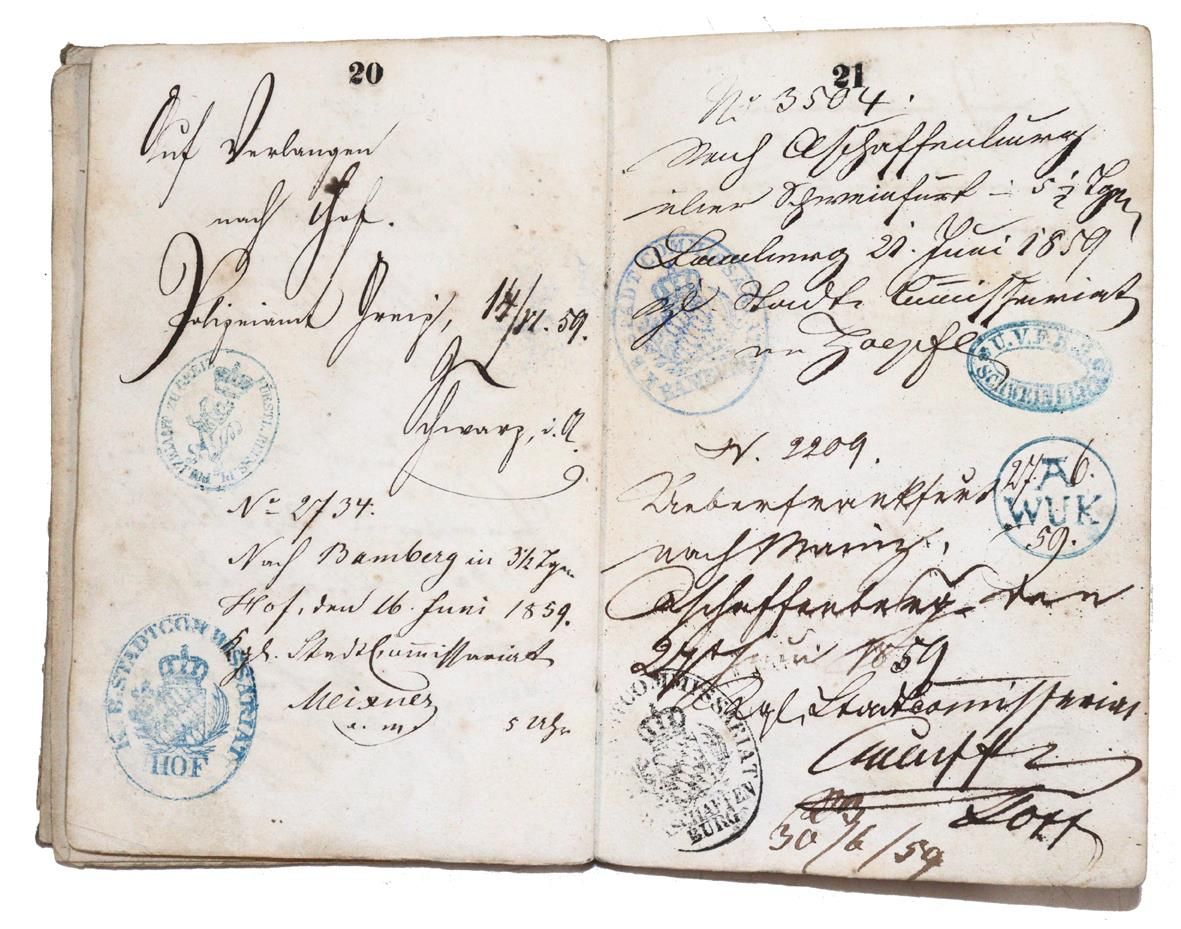 20
Auf Verlangen
nach Hof.
Polizeiamt Greiz, 14/VI. 59.
Schwarz, i. A.
No 2734.
Nach Bamberg in 3½ Tgn
Hof, den 16. Juni 1859.
Kgl. StadtCommissariat
Meixner
5 Uhr
K. B. STADTCOMMISSARIAT
HOF
21
No 3504.
Nach Aschaffenburg
über Schweinfurt in 5½ Tgn
Bamberg 21. Juni 1859
Stadt Commissariat
Zoepfl
STADTCOMMISSARIAT
BAMBERG
SCHWEINFURT
N. 2209.
A
WUK
27. 6.
59.
Ueber Frankfurt
nach Mainz,
Aschaffenburg den
27t Juni 1859
Kgl. Stadtcomissariat
COMMISSARIAT
ASCHAFFEN
BURG
30/6/59